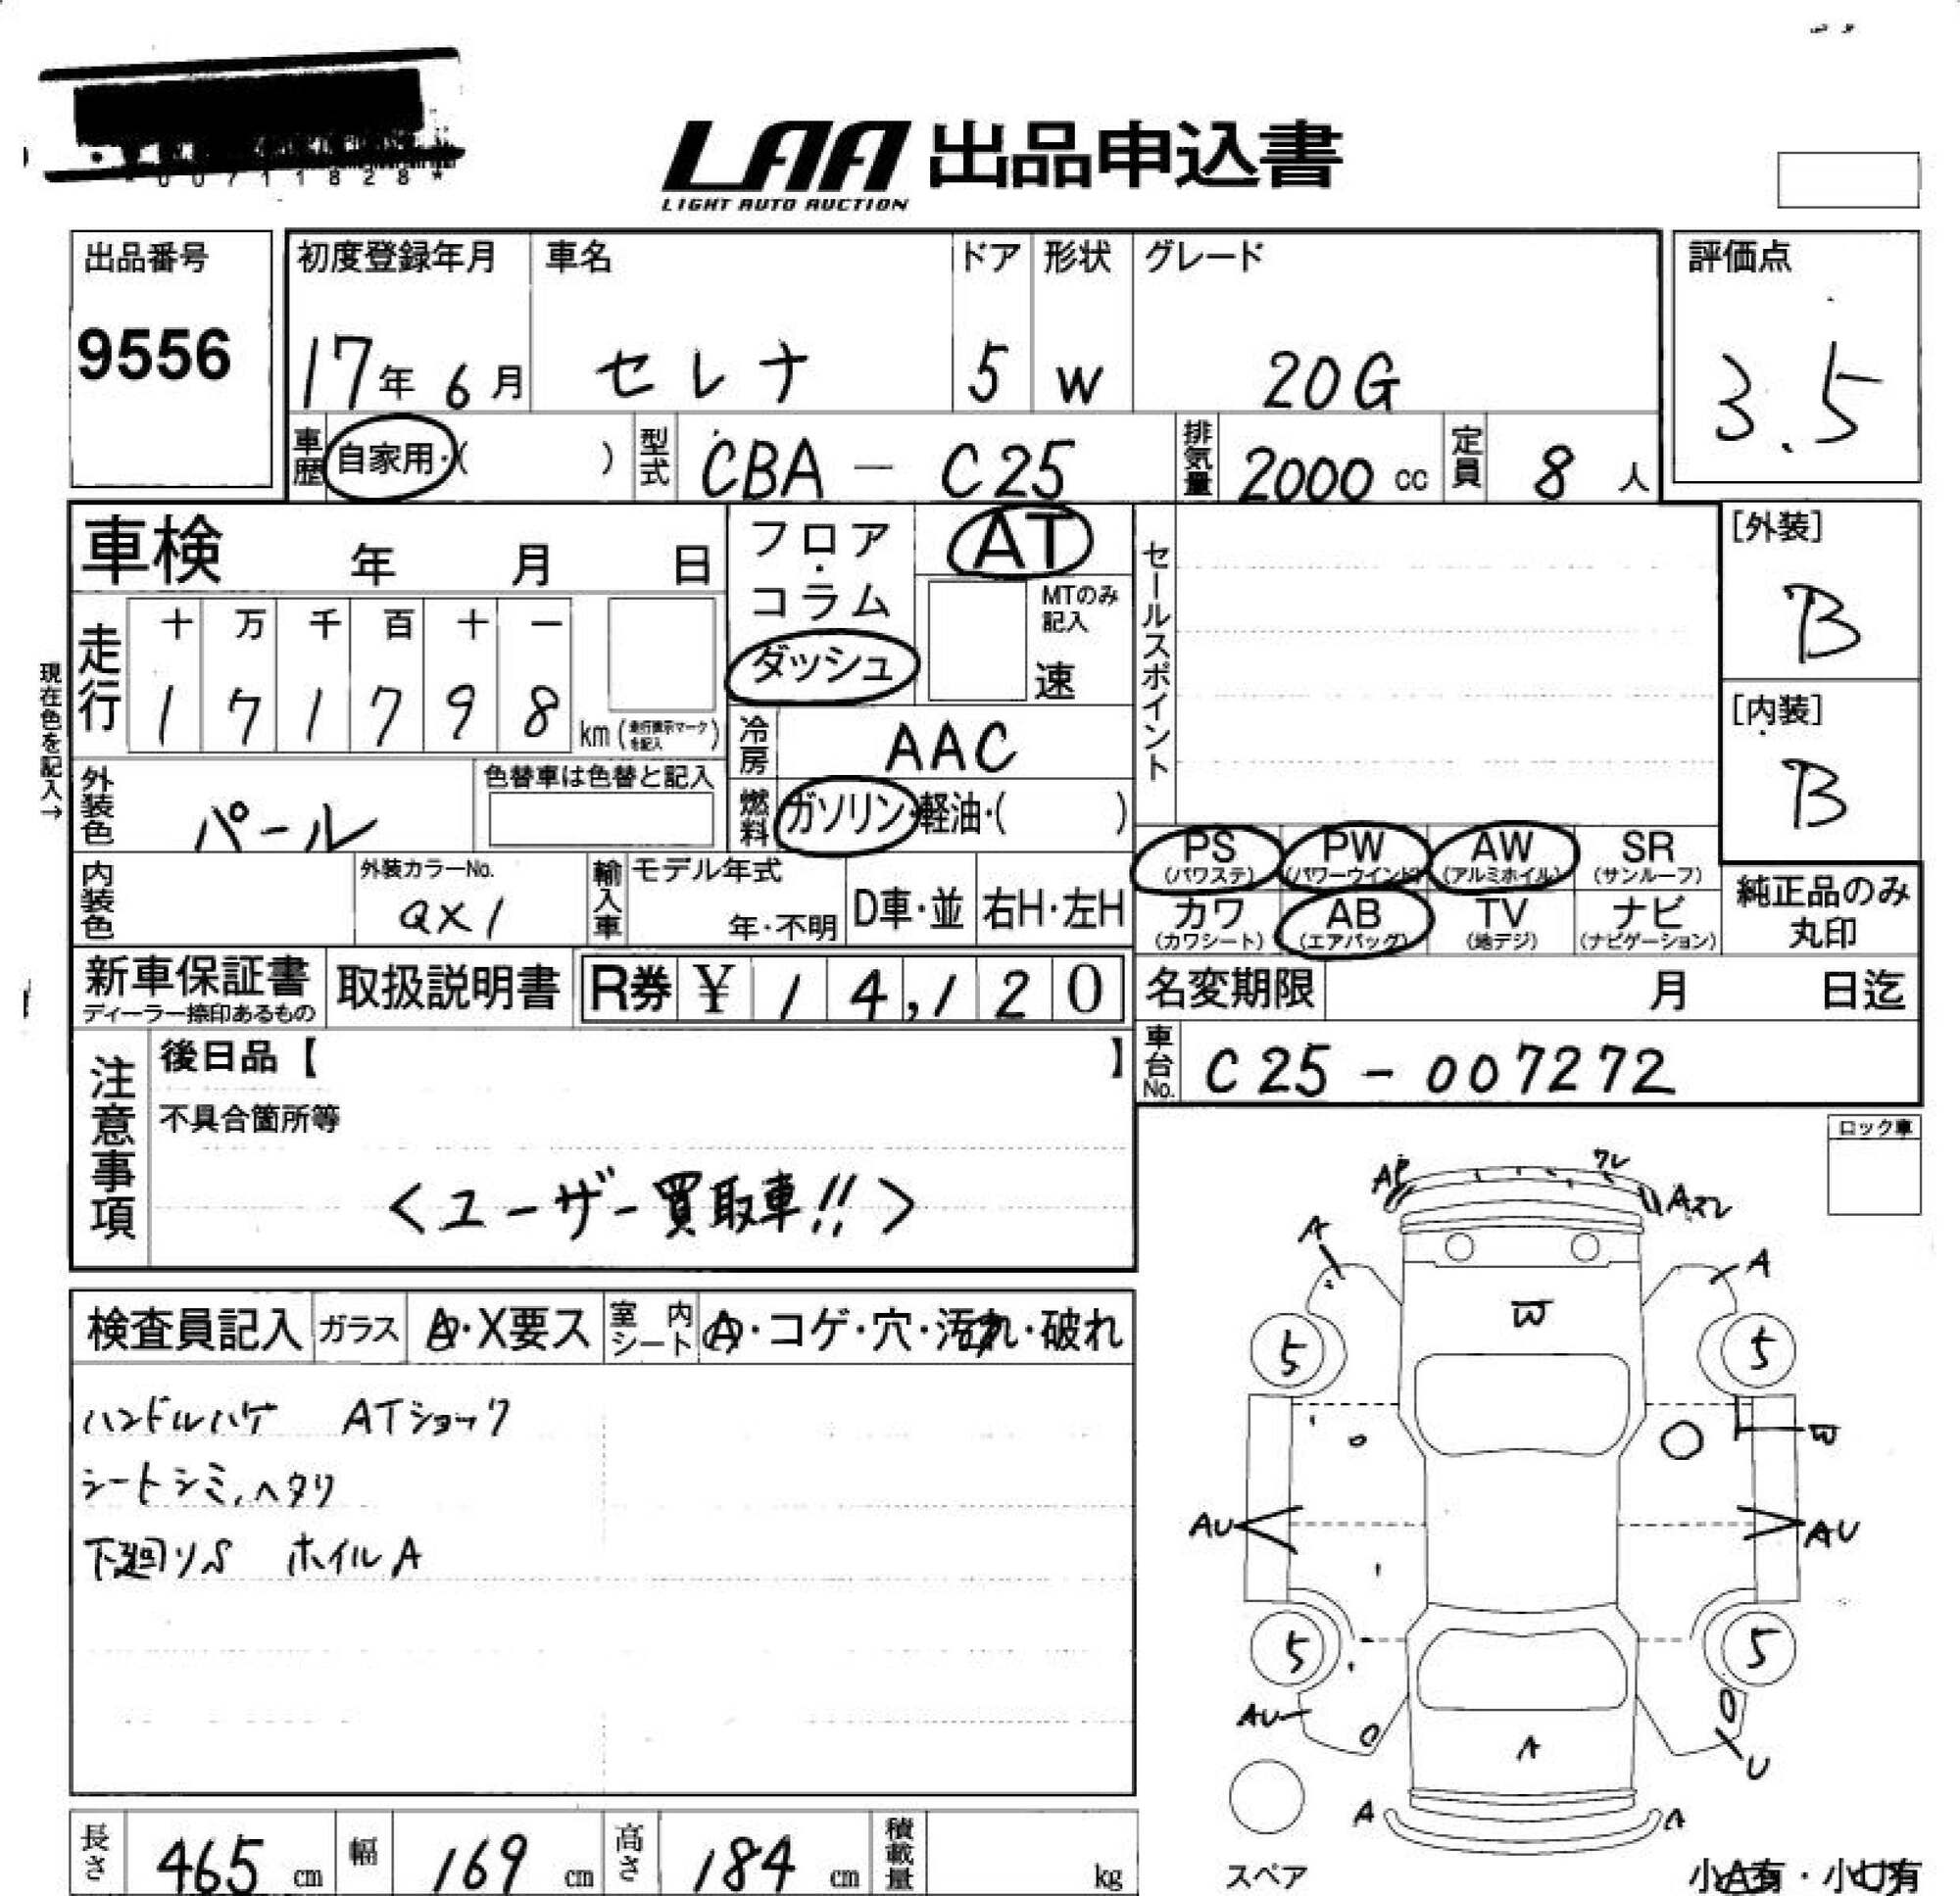 00711828*
LAA 出品申込書
LIGHT AUTO AUCTION
出品番号
9556
初度登録年月 車名 ドア 形状 グレード
17年 6月 セレナ 5 W 20G
評価点
3.5
車歴 自家用・( ) 型式 CBA - C25 排気量 2000 cc 定員 8 人
車検 年 月 日
フロア・コラム
ダッシュ
AT
MTのみ記入
速
セールスポイント
[外装]
B
[内装]
B
現在色を記入→
走行 十 万 千 百 十 一
1 7 1 7 9 8 km (走行表示マークを記入)
冷房 AAC
外装色 パール
色替車は色替と記入
燃料 ガソリン・軽油・( )
PS (パワステ) PW (パワーウインド) AW (アルミホイル) SR (サンルーフ)
カワ (カワシート) AB (エアバッグ) TV (地デジ) ナビ (ナビゲーション)
純正品のみ
丸印
内装色 外装カラーNo. QX1 輸入車 モデル年式 年・不明 D車・並 右H・左H
新車保証書 ディーラー捺印あるもの 取扱説明書 R券 ¥ 14,120
名変期限 月 日迄
車台No. C25-007272
注意事項
後日品【 】
不具合箇所等
<ユーザー買取車!!>
ロック車
検査員記入 ガラス A・X要ス 室内シート A・コゲ・穴・汚れ・破れ
ハンドルハゲ ATショック
シートシミ、ヘタリ
下廻りS ホイルA
ワレ
Aズレ
A A
W
5 5
W
AU AU
5 5
AU
A U
A A
スペア
小A有・小U有
長さ 465 cm 幅 169 cm 高さ 184 cm 積載量 kg